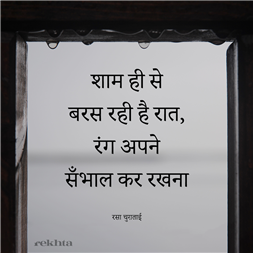 शाम ही से
बरस रही है रात,
रंग अपने
सँभाल कर रखना
रसा चुग़ताई
rekhta